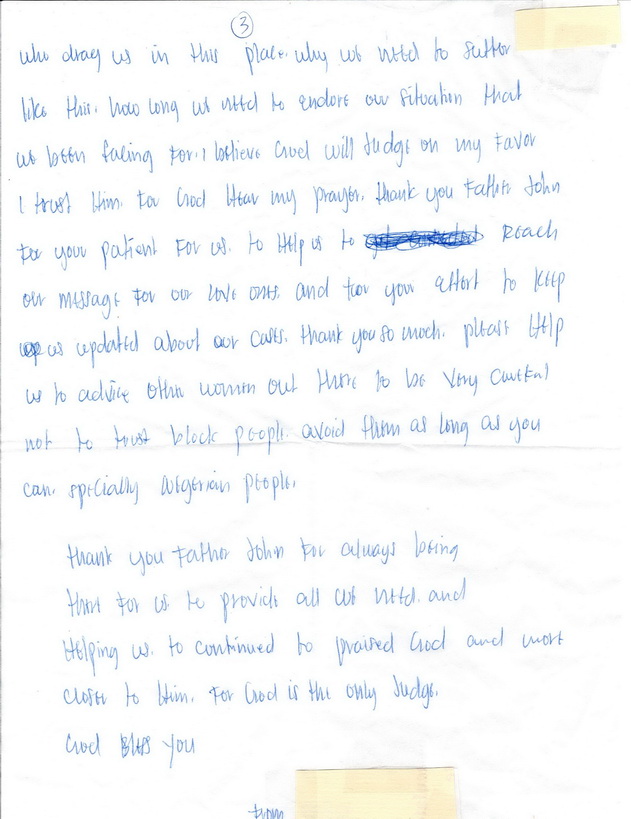 3
who drag us in this place. why we need to suffer
like this. how long we need to endore our situation that
we been facing for. I believe God will Judge on my Favor
I trust Him. For God Hear my prayer. thank you Father John
For your patient For us. to Help us to Reach
our message for our love ones. and for your effort to keep
us updated about our cases. thank you so much. please Help
us to advice other women out there to be very careful
not to trust black people. avoid them as long as you
can. specially Nigerian people.
thank you Father John For always being
there For us to provide all we need. and
Helping us. to continued to praised God and more
closer to Him. For God is the only Judge.
God Bless You
from